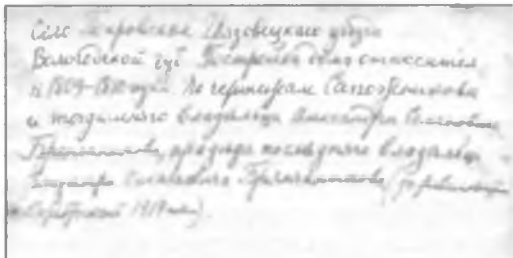 Село Покровское Грязовецкого уезда
Вологодской губ. Постройка дома относится
к 1809-1810 годам. По чертежам Сапожникова
и тогдашнего владельца Александра Семеновича
Брянчанинова, прадеда последнего владельца
Семеновича Брянчанинова (до революции
Октябрьской 1917 года).